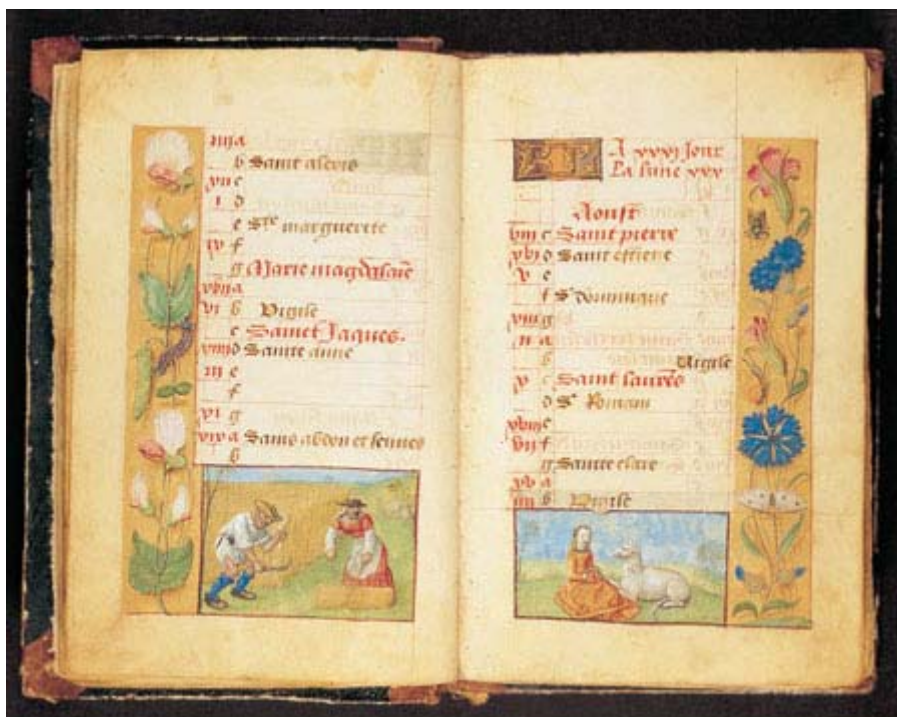 A
b Saint alexis
e
d
e Ste marguerite
f
g Marie magdalaine
A
b Vigile
c Sainct Jaques.
d Sainte anne
e
f
g
xix a Sains abdon et sennes
b
KL A xxxj jour
La lune xxx
Aoust
viij c Saint pierre
xvj d Saint estiene
v e
f St dominique
xiij g
ij a
b Vigile
x c Saint laurens
d St Romain
xviij e
vij f
g Sainte clare
xv a
iiij b Vigile